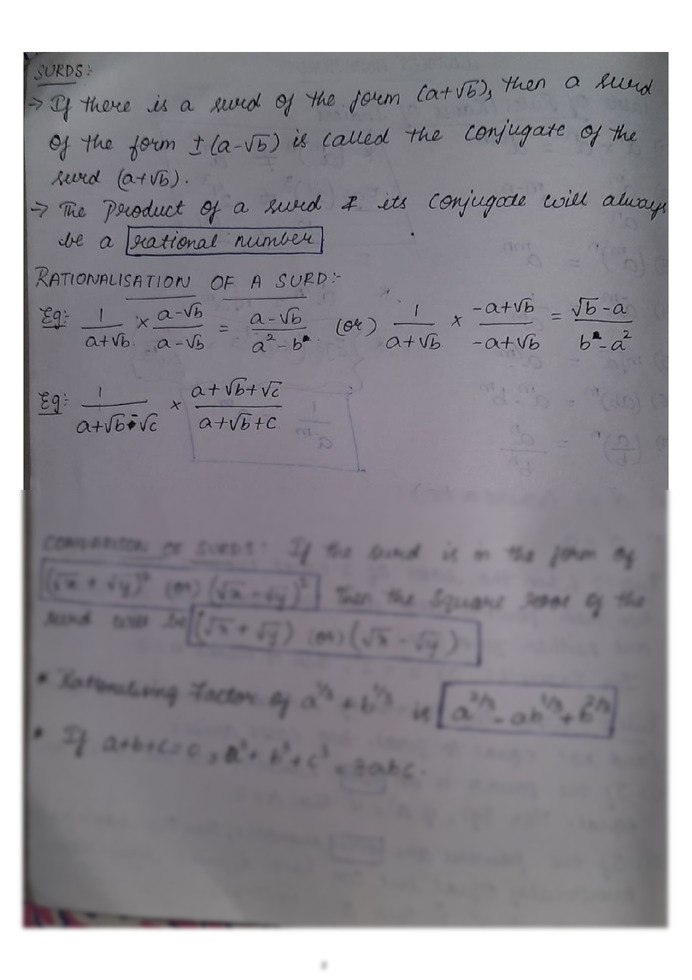 SURDS:-
→ If there is a surd of the form (a+√b), then a surd
of the form ±(a-√b) is called the conjugate of the
surd (a+√b).
→ The Product of a surd & its conjugate will always
be a rational number
RATIONALISATION OF A SURD:-
Eg:- 1/(a+√b) × (a-√b)/(a-√b) = (a-√b)/(a²-b) (or) 1/(a+√b) × (-a+√b)/(-a+√b) = (√b-a)/(b-a²)
Eg:- 1/(a+√b-√c) × (a+√b+√c)/(a+√b+c)
COMPARISON OF SURDS: If the surd is in the form of
(√x + √y)² (or) (√x - √y)² Then the square root of the
surd will be (√x + √y) (or) (√x - √y)
• Rationalising Factor of a^1/3 + b^1/3 is
• If a+b+c=0, a³+b³+c³=3abc.